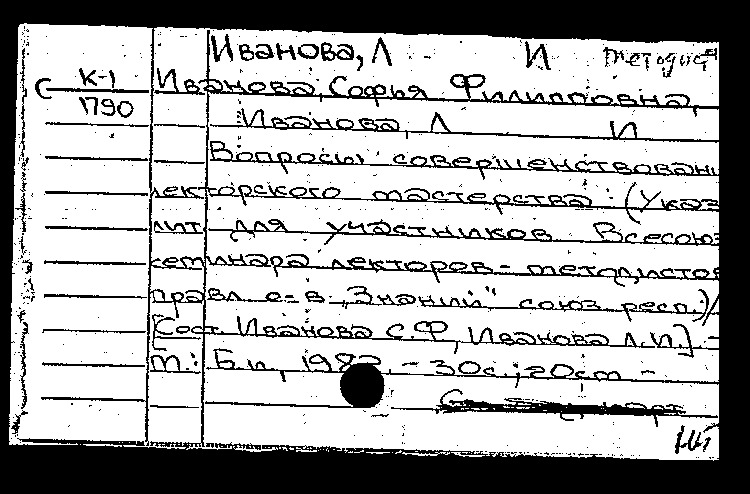 Иванова, Л И методист
С К-1 Иванова, Софья Филипповна,
1790
Иванова, Л И
Вопросы совершенствовани
лекторского мастерства: (Указ
лит для участников Всесоюз
семинара лекторов-методистов
правл о-в „Знаний" союз респ.)/
[Сост Иванова С.Ф, Иванова Л.И.]. -
М.: Б.и, 1982. - 30с.; 20см -